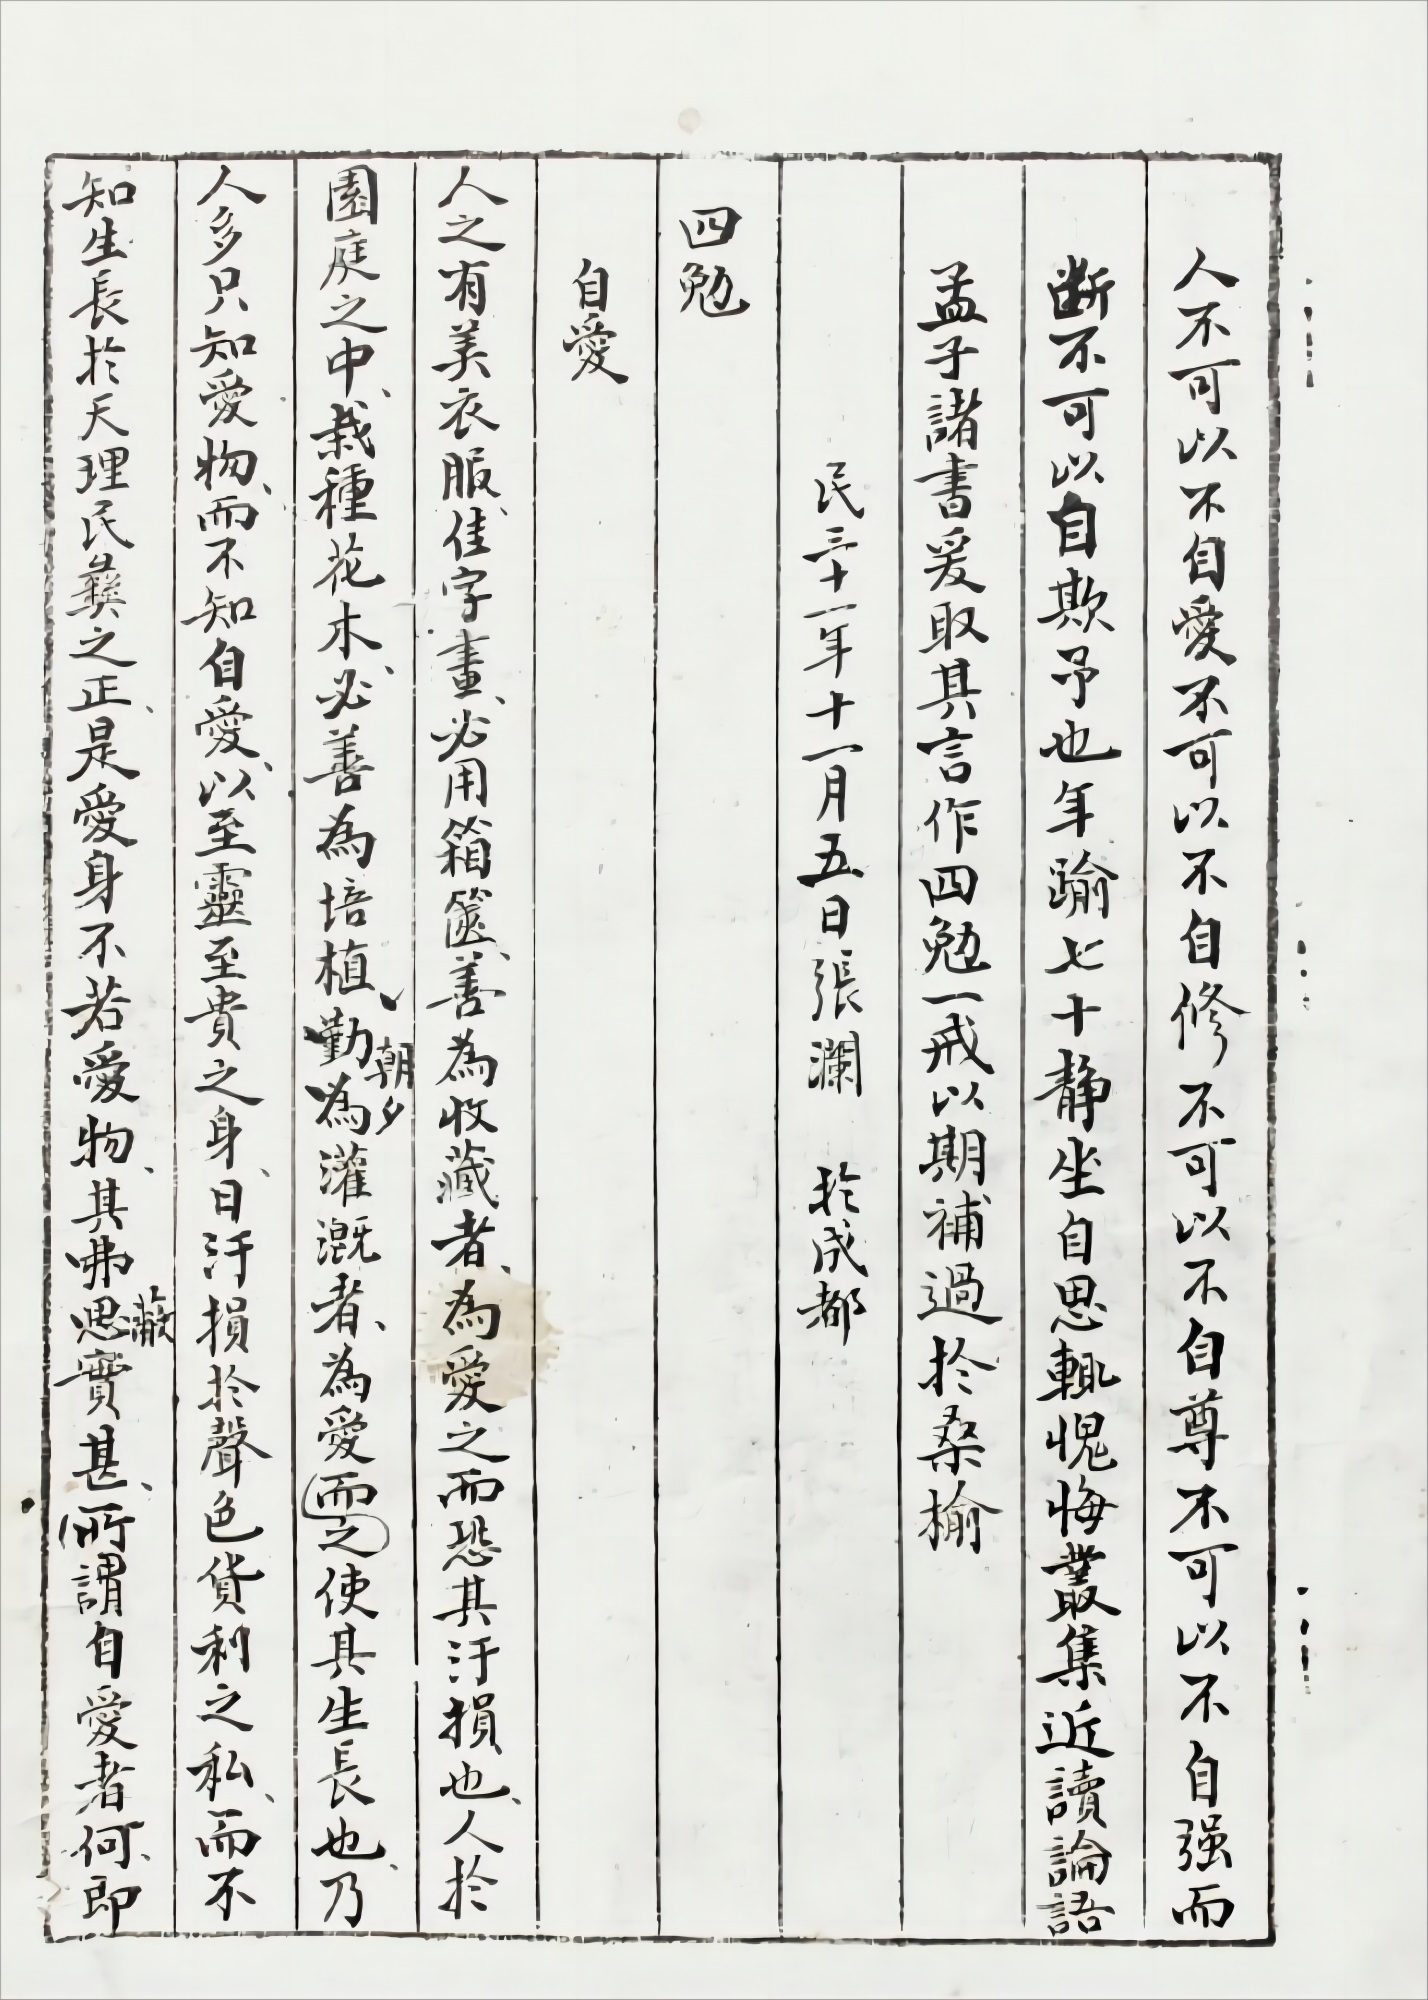 人不可以不自愛不可以不自修不可以不自尊不可以不自强而
斷不可以自欺予也年踰七十靜坐自思輒愧悔叢集近讀論語
孟子諸書爰取其言作四勉一戒以期補過於桑榆
民三十一年十一月五日張瀾 於成都
四勉
自愛
人之有美衣服、佳字畫、必用箱篋、善為收藏者、為愛之而恐其汙損也、人於
園庭之中、栽種花木、必善為培植、朝夕勤為灌溉者、為愛而之使其生長也、乃
人多只知愛物、而不知自愛、以至靈至貴之身、日汙損於聲色貨利之私、而不
知生長於天理民彝之正、是愛身不若愛物、其弗思蔽實甚、所謂自愛者何、即